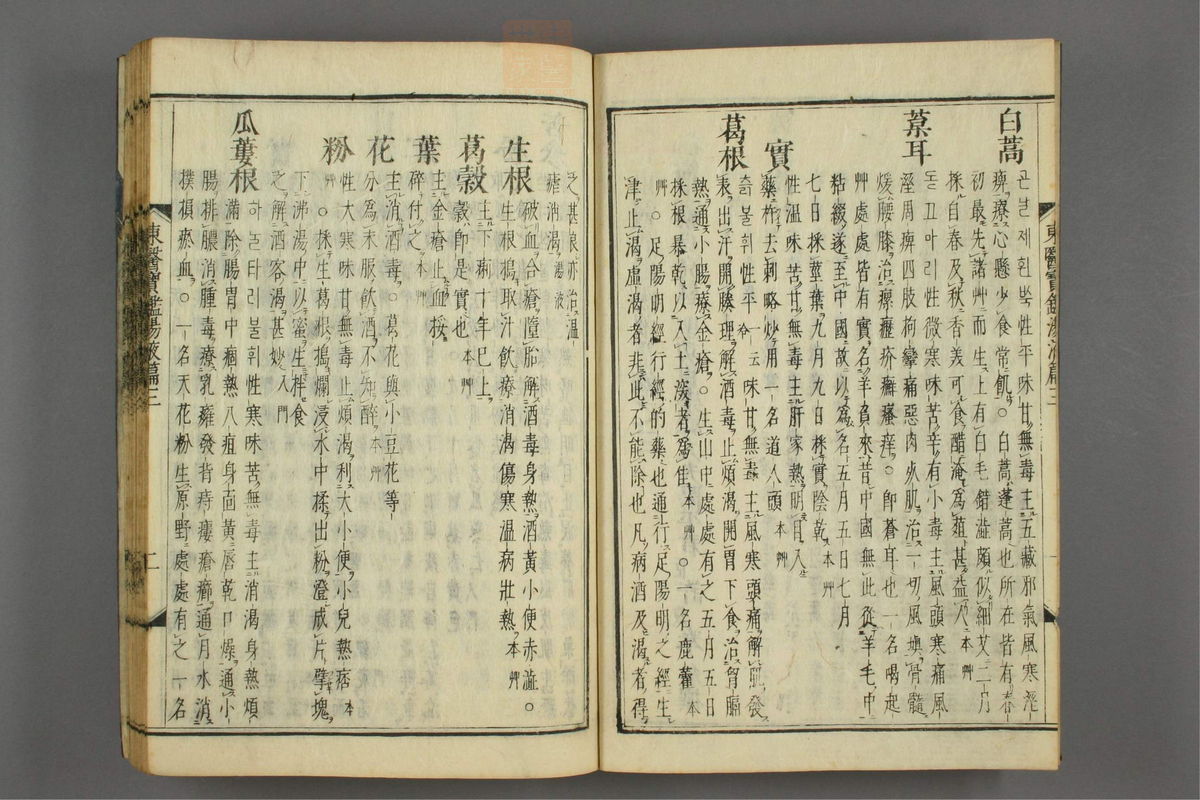 白蒿
곤·흰쑥性平味甘無毒主五藏邪氣風寒溼
痺療心懸少食常飢○白蒿蓬蒿也所在皆有春
初最先諸艸而生上有白毛錯澁頗似細艾二月
採自春及秋香美可食醋淹爲菹甚益人 本艸
葈耳
돋고마리性微寒味苦辛有小毒主風頭寒痛風
溼周痺四肢拘攣痛惡肉死肌治一切風塡骨髓
煖腰膝治瘰癧疥癬瘙痒○卽蒼耳也一名喝起
艸處處皆有實名羊負來昔中國無此從羊毛中
粘綴遂至中國故以爲名五月五日七月
七日採莖葉九月九日採實陰乾 本艸
實
性溫味苦甘無毒主肝家熱明目入
藥杵去刺略炒用一名道人頭 本艸
葛根
츩불휘性平 味甘無毒主風寒頭痛解肌發
表出汗開腠理解酒毒止煩渴開胃下食治胷膈
熱通小腸療金瘡○生山中處處有之五月五日
採根暴乾以入土深者爲佳 本艸 ○一名鹿藿 本
艸○足陽明經行經的藥也通行足陽明之經生
津止渴虛渴者非此不能除也凡病酒及渴者得
東醫寶鑑湯液篇三
之甚良亦治溫
瘧消渴 湯液
生根
破血合瘡墮胎解酒毒身熱酒黃小便赤澁○
生根搗取汁飮療消渴傷寒溫病壯熱 本艸
葛穀
主下痢十年已上
穀卽是實也 本艸
葉
主金瘡止血挼
碎付之 本艸
花
主消酒毒○葛花與小豆花等
分爲末服飮酒不知醉 本艸
粉
性大寒味甘無毒止煩渴利大小便小兒熱痞 本
艸○採生葛根搗爛浸水中揉出粉澄成片擘塊
下沸湯中以蜜生拌食
之解酒客渴甚妙 入門
瓜蔞根
하놀타리불휘性寒味苦無毒主消渴身熱煩
滿除腸胃中痼熱八疸身面黃唇乾口燥通小
腸排膿消腫毒療乳癰發背痔瘻瘡癤通月水消
撲損瘀血○一名天花粉生原野處處有之一名
東醫寶鑑湯液篇三
二